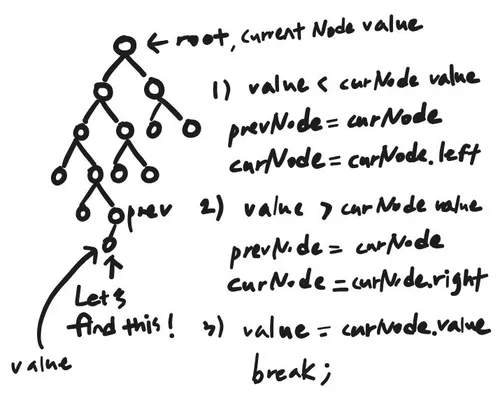 ← root, current Node value
1) value < curNode value
prevNode = curNode
curNode = curNode.left
prev
2) value > curNode value
prevNode = curNode
curNode = curNode.right
Let's
find this!
value
3) value = curNode.value
break;